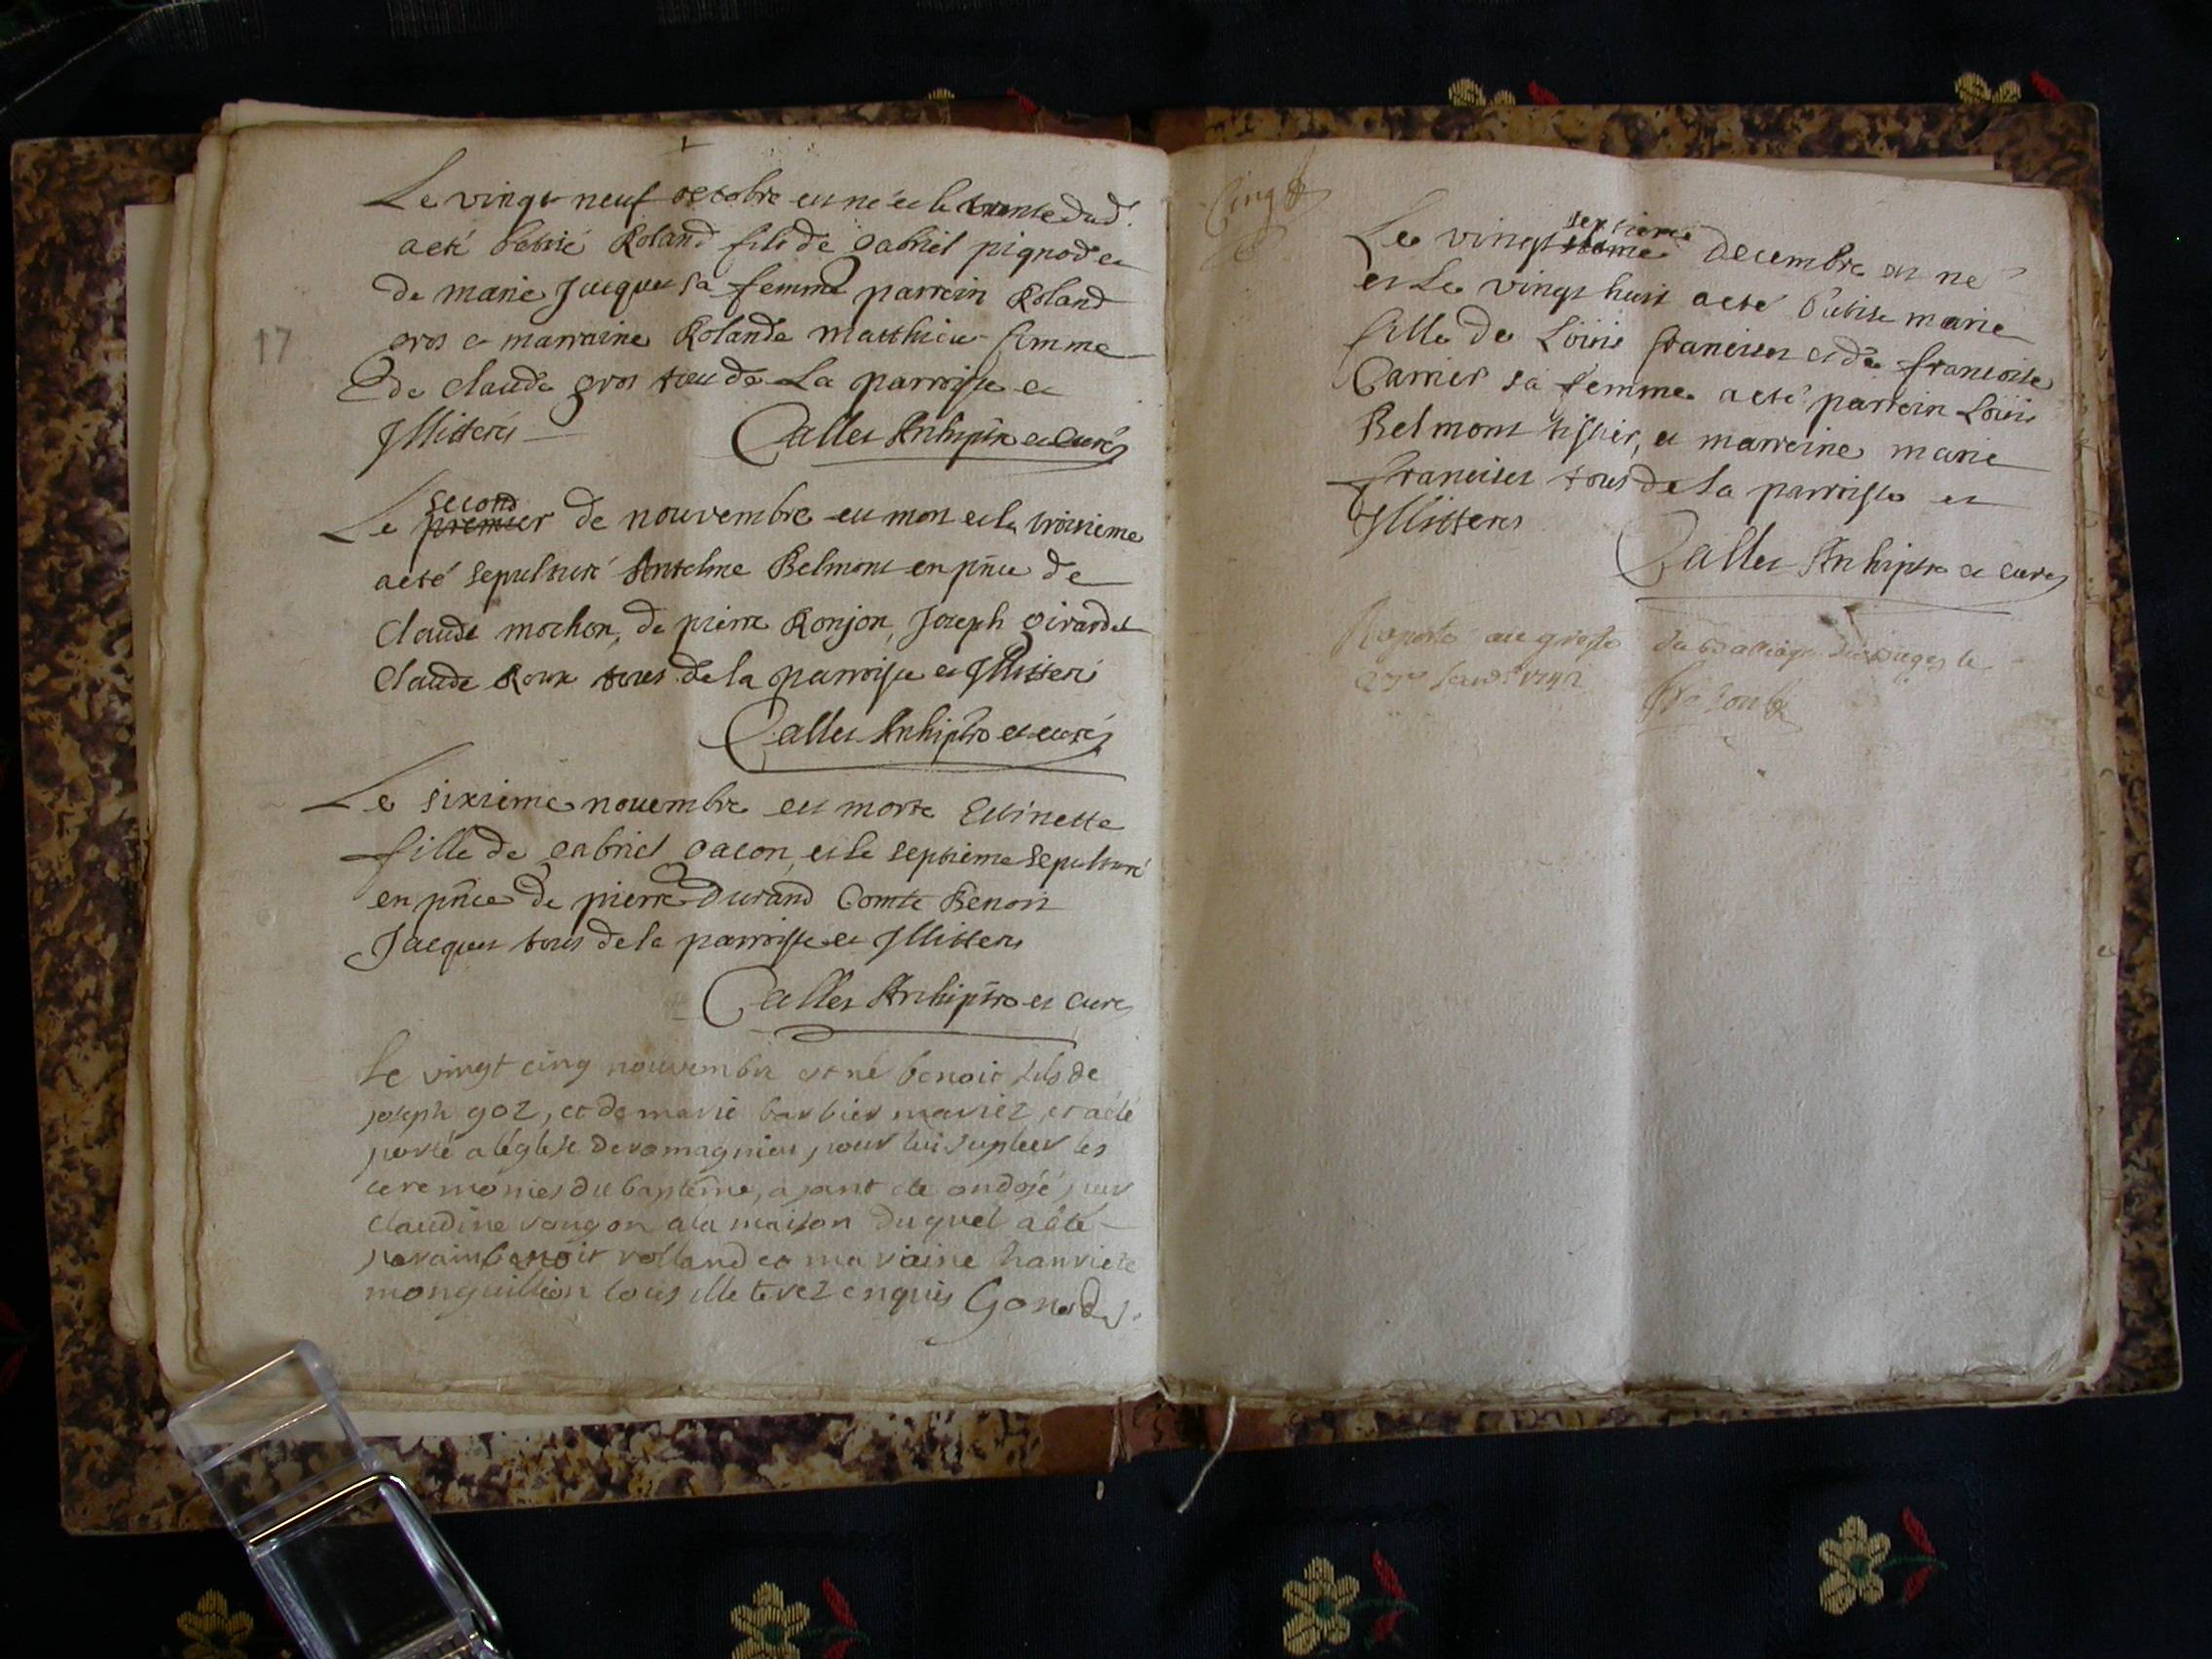 Le vingt neuf octobre est né et le trente dud.
a eté batisé Roland fils de gabriel pignod et
de marie Jacques sa femme parrein Roland
gros et marraine Rolande matthieu femme
de claude gros tous de La parroisse et
Jllitterés
Calles Archiptre et curé
17
Le second premier de nouvembre est mort et le troisieme
a eté sepulturé Antelme Belmont en pñce de
Claude mochon, de pierre Ronjon, Joseph girardet
Claude Roux tous de la parroisse et Jllitteré
Calles Archiptre et curé
Le sixieme novembre est morte
fille de gabriel gacon, et le septieme sepulturé
en pñce de pierre Durand Comte Benoit
Jacques tous de la parroisse et Jllitteres
Calles Archiptre et curé
le vingt cinq nouvembre est né benoit fils de
joseph goz, et de marie barbier mariez, et a eté
porté a l'église de romagnieu, pour lui supleer les
ceremonies du baptême, ajant ete ondojé par
claudine vougon a la maison duquel a été
parain benoit rolland et maraine hanriete
monguillion tous illeterez enquis
Le vingt septieme Decembre est né
et Le vingt huit a eté batisé marie
fille de Loüis franciset et de francoise
Carrier sa femme a eté parrein Loüis
Belmont tissier, et marreine marie
francises tous de la parroisse et
Jllitteres
Calles Archiptre et curé
au greffe du le
1742